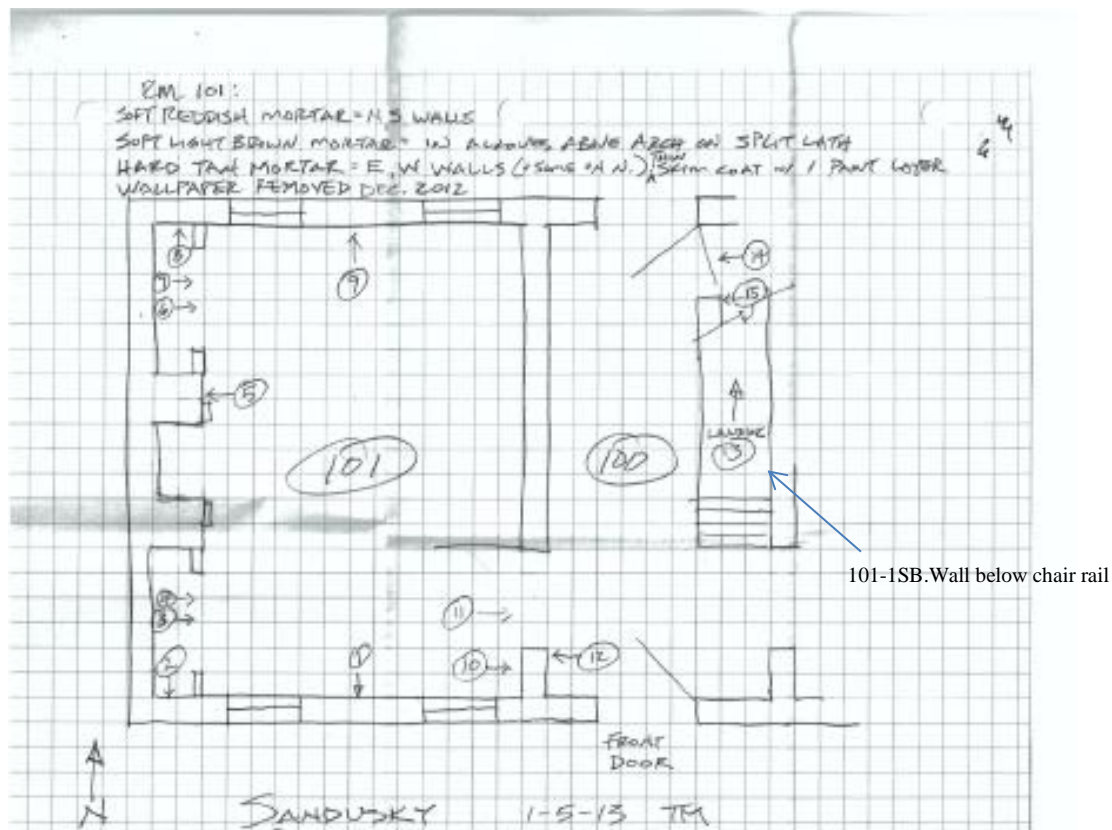 RM 101:
SOFT REDDISH MORTAR = N, S WALLS
SOFT LIGHT BROWN MORTAR = IN ALCOVES, ABOVE ARCH ON SPLIT LATH
HARD TAN MORTAR = E, W WALLS (+ SOME ON N.), THIN SKIM COAT W/ 1 PAINT LAYER
WALLPAPER REMOVED DEC. 2012
8
14
7
9
15
6
5
LANDING
101
100
13
101-1SB.Wall below chair rail
3
11
2
1
10
12
FRONT
DOOR
N
SANDUSKY 1-5-13 TM